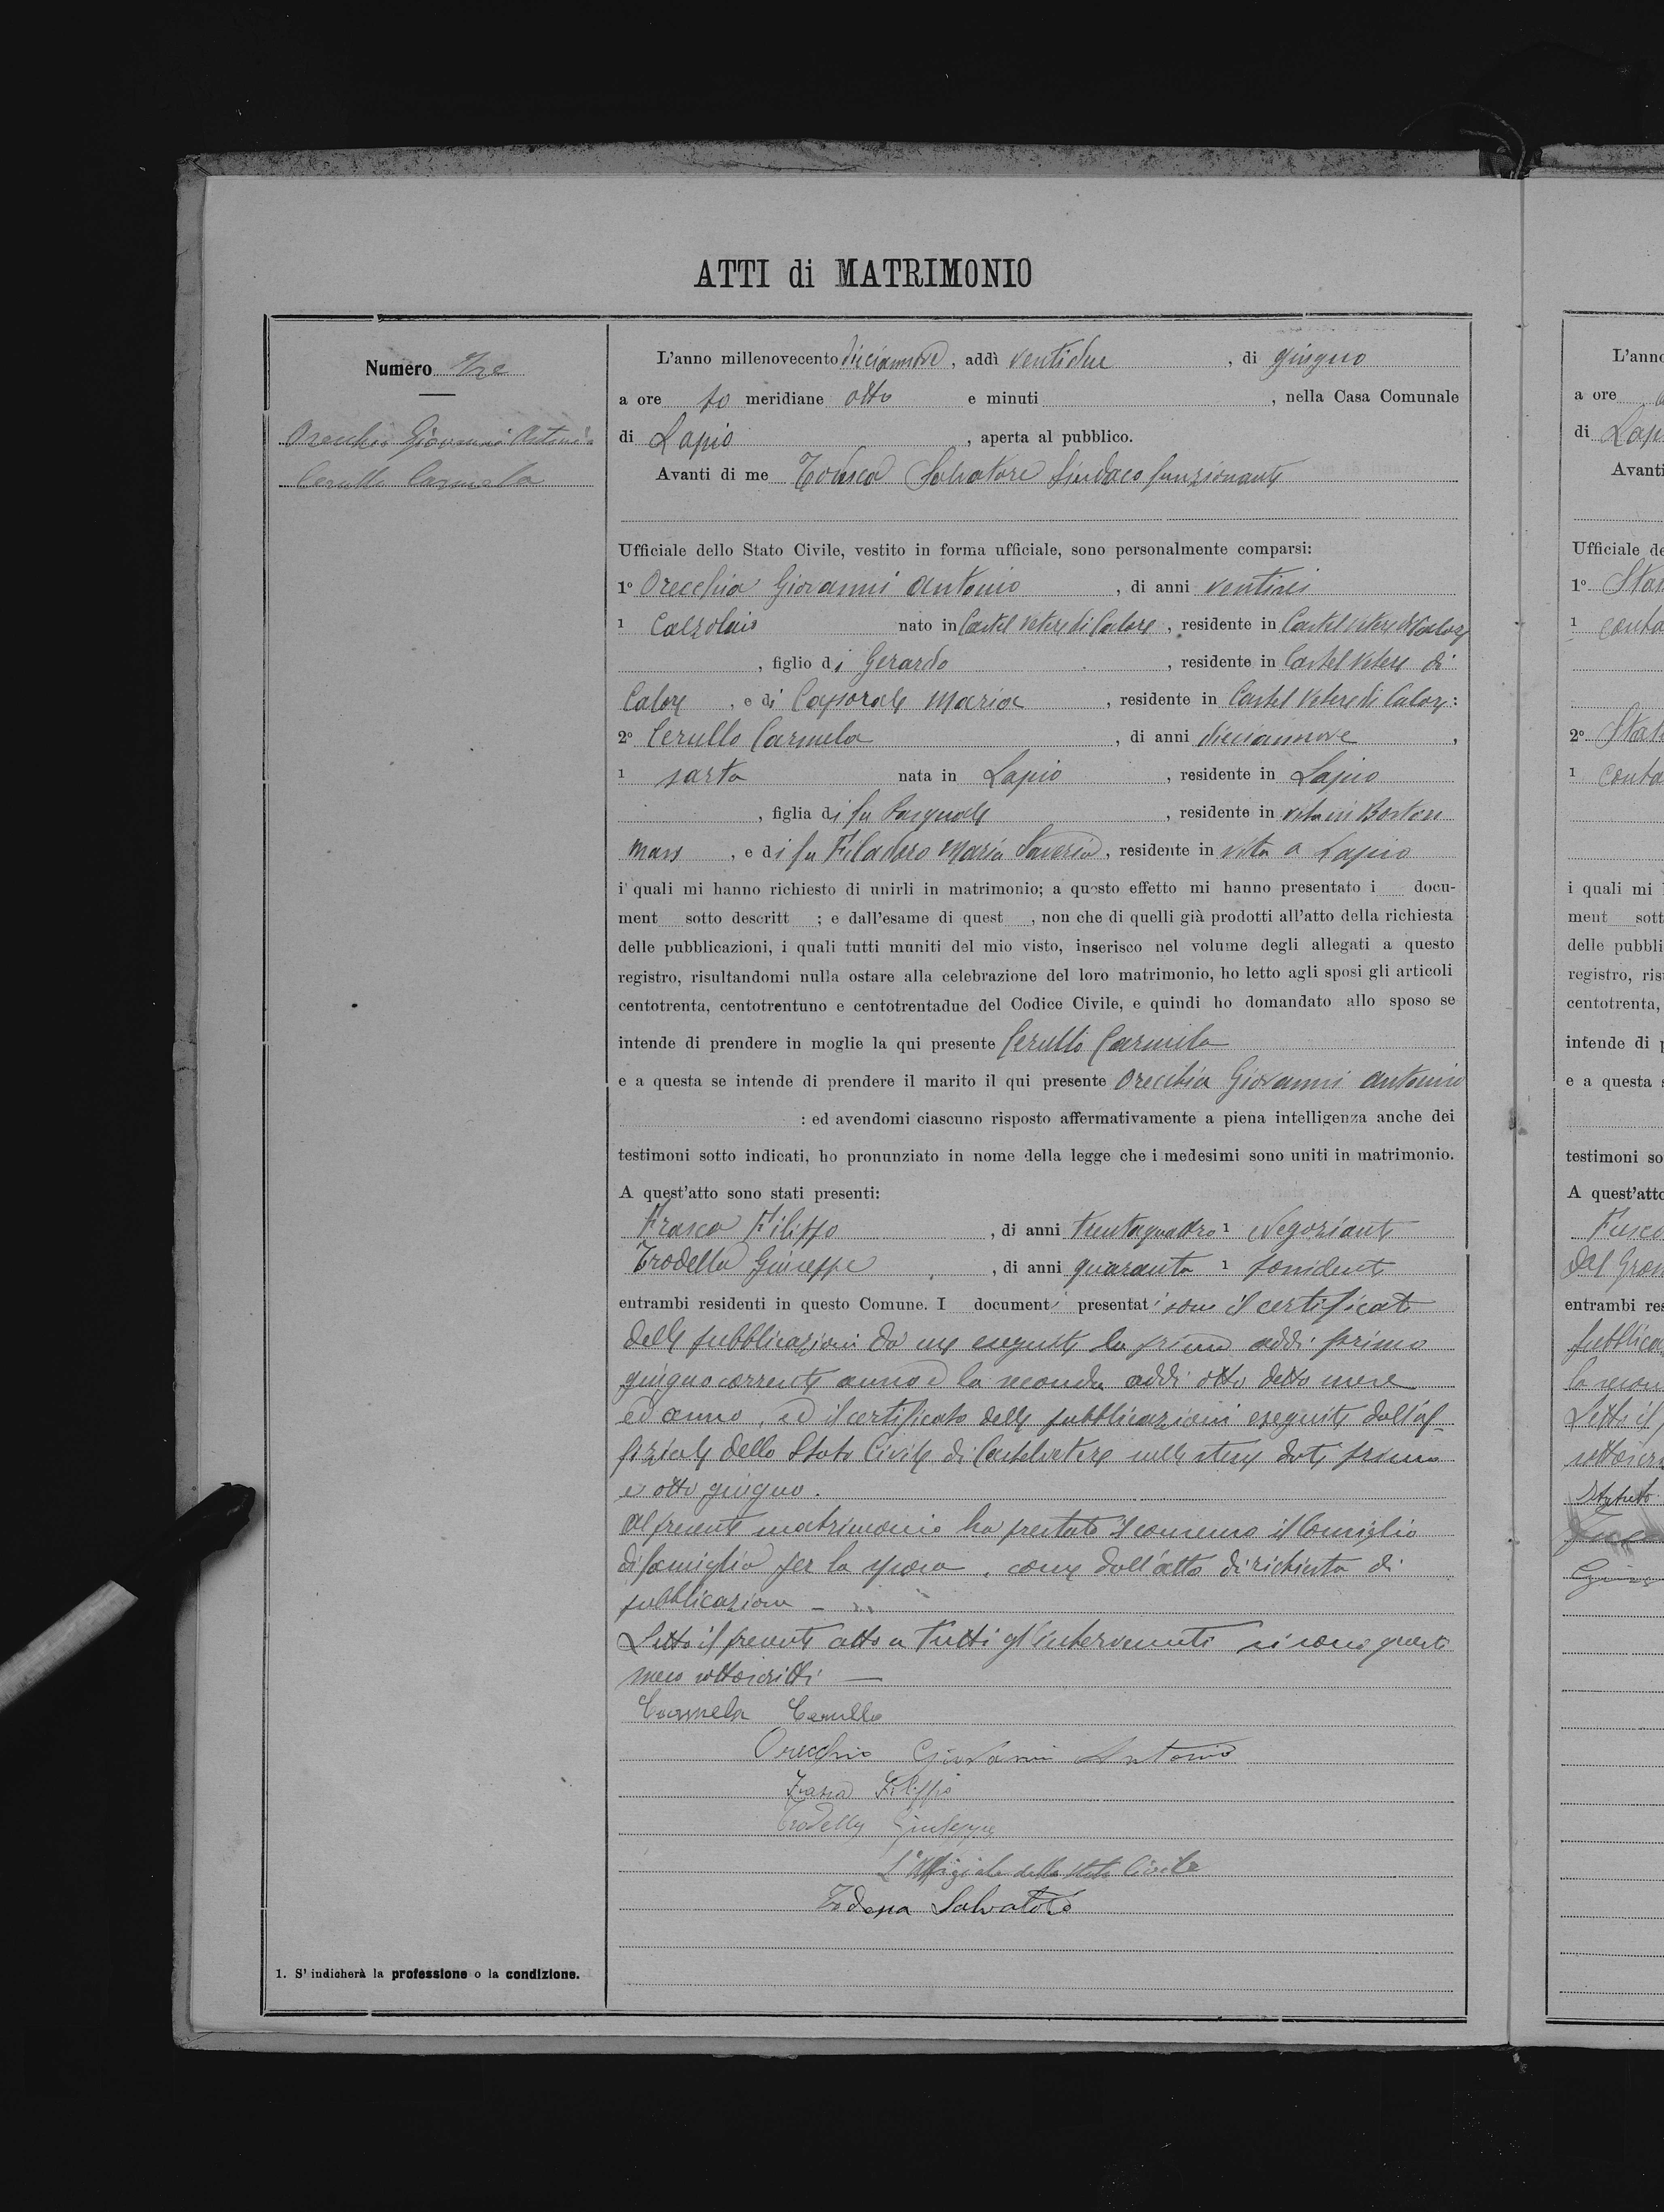 ATTI di MATRIMONIO
Numero Tre
Orecchia Giovanni Antonio
Cerullo Carmela
L'anno millenovecento diciannove, addì ventidue, di giugno
a ore po meridiane otto e minuti, nella Casa Comunale
di Lapio, aperta al pubblico.
Avanti di me Todesca Salvatore Sindaco funzionante
Ufficiale dello Stato Civile, vestito in forma ufficiale, sono personalmente comparsi:
1º Orecchia Giovanni Antonio, di anni ventisei
1 Calzolaio nato in Castel Vetere di Calore, residente in Castel Vetere di Calore
, figlio di Gerardo, residente in Castel Vetere di
Calore, e di Caporale Maria, residente in Castel Vetere di Calore:
2º Cerullo Carmela, di anni diciannove,
1 sarta nata in Lapio, residente in Lapio
, figlia di fu Pasquale, residente in vita in Boston
Mass, e di fu Filadoro Maria Saveria, residente in vita a Lapio
i quali mi hanno richiesto di unirli in matrimonio; a questo effetto mi hanno presentato i docu-
ment sotto descritt ; e dall'esame di quest , non che di quelli già prodotti all'atto della richiesta
delle pubblicazioni, i quali tutti muniti del mio visto, inserisco nel volume degli allegati a questo
registro, risultandomi nulla ostare alla celebrazione del loro matrimonio, ho letto agli sposi gli articoli
centotrenta, centotrentuno e centotrentadue del Codice Civile, e quindi ho domandato allo sposo se
intende di prendere in moglie la qui presente Cerullo Carmela
e a questa se intende di prendere il marito il qui presente Orecchia Giovanni Antonio
: ed avendomi ciascuno risposto affermativamente a piena intelligenza anche dei
testimoni sotto indicati, ho pronunziato in nome della legge che i medesimi sono uniti in matrimonio.
A quest'atto sono stati presenti:
Frasca Filippo, di anni trentaquattro 1 Negoziante
Trodella Giuseppe, di anni quaranta 1 possidente
entrambi residenti in questo Comune. I documenti presentati sono il certificato
delle pubblicazioni da me eseguite la prima addì primo
giugno corrente anno e la seconda addì otto detto mese
ed anno, ed il certificato delle pubblicazioni eseguite dall'uf-
fiziale dello Stato Civile di Castelvetere nelle stesse date primo
e otto giugno.
Al presente matrimonio ha prestato il consenso il Consiglio
di famiglia per la sposa, come dall'atto di richiesta di
pubblicazione —
Letto il presente atto a tutti gl'intervenuti si sono questi
meco sottoscritti —
Carmela Cerullo
Orecchio Giovanni Antonio
Frasca Filippo
Trodella Giuseppe
L'Uffiziale dello Stato Civile
Todesca Salvatore
1. S'indicherà la professione o la condizione.
L'anno
a ore
di
Avanti
Ufficiale de
1º
1
2º
1
i quali mi
ment sott
delle pubbli
registro, ris
centotrenta,
intende di p
e a questa
testimoni so
A quest'atto
entrambi res